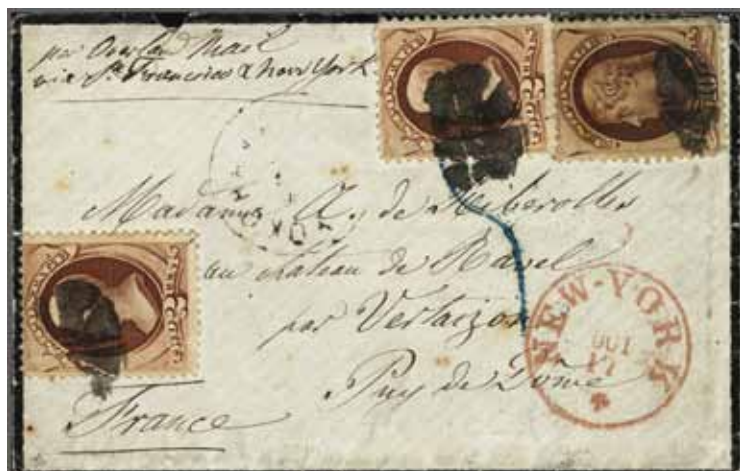 per Overland Mail
via Sn Francisco & New York
Madame A. de Riberolles
au château de Ravel
par Vertaizon
Puy de Dôme
France
NEW-YORK
OCT
17